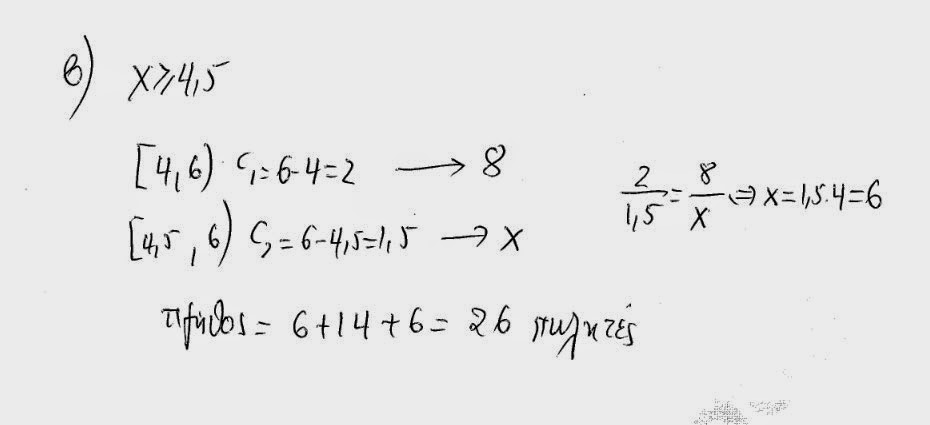 β) x⩾4,5
[4,6) c₁=6-4=2 ⟶ 8
[4,5, 6) c₂=6-4,5=1,5 ⟶ x
2/1,5=8/x ⇔ x=1,5·4=6
πλήθος= 6+14+6= 26 πωλητές